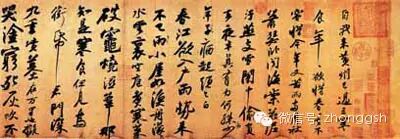 自我来黄州已過三寒
食年〻欲惜春春去不
容惜今年又苦雨兩月秋
蕭瑟卧聞海棠花泥
汙燕支雪闇中偷負
去夜半真有力何殊少
年子病起頭已白
春江欲入户雨勢来
不已雨小屋如漁舟濛〻
水雲裏空庖煮寒菜
破竈燒濕葦那
知是寒食但見烏
銜帋君門深
九重墳墓在万里也擬
哭塗窮死灰吹不
微信号: zhonggsh